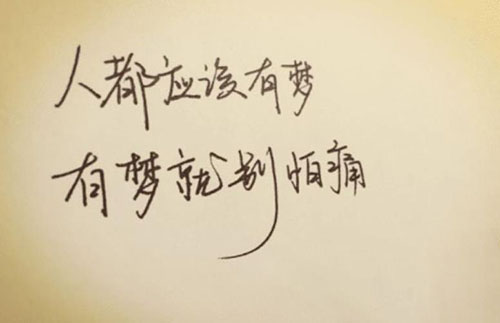 人都应该有梦
有梦就别怕痛